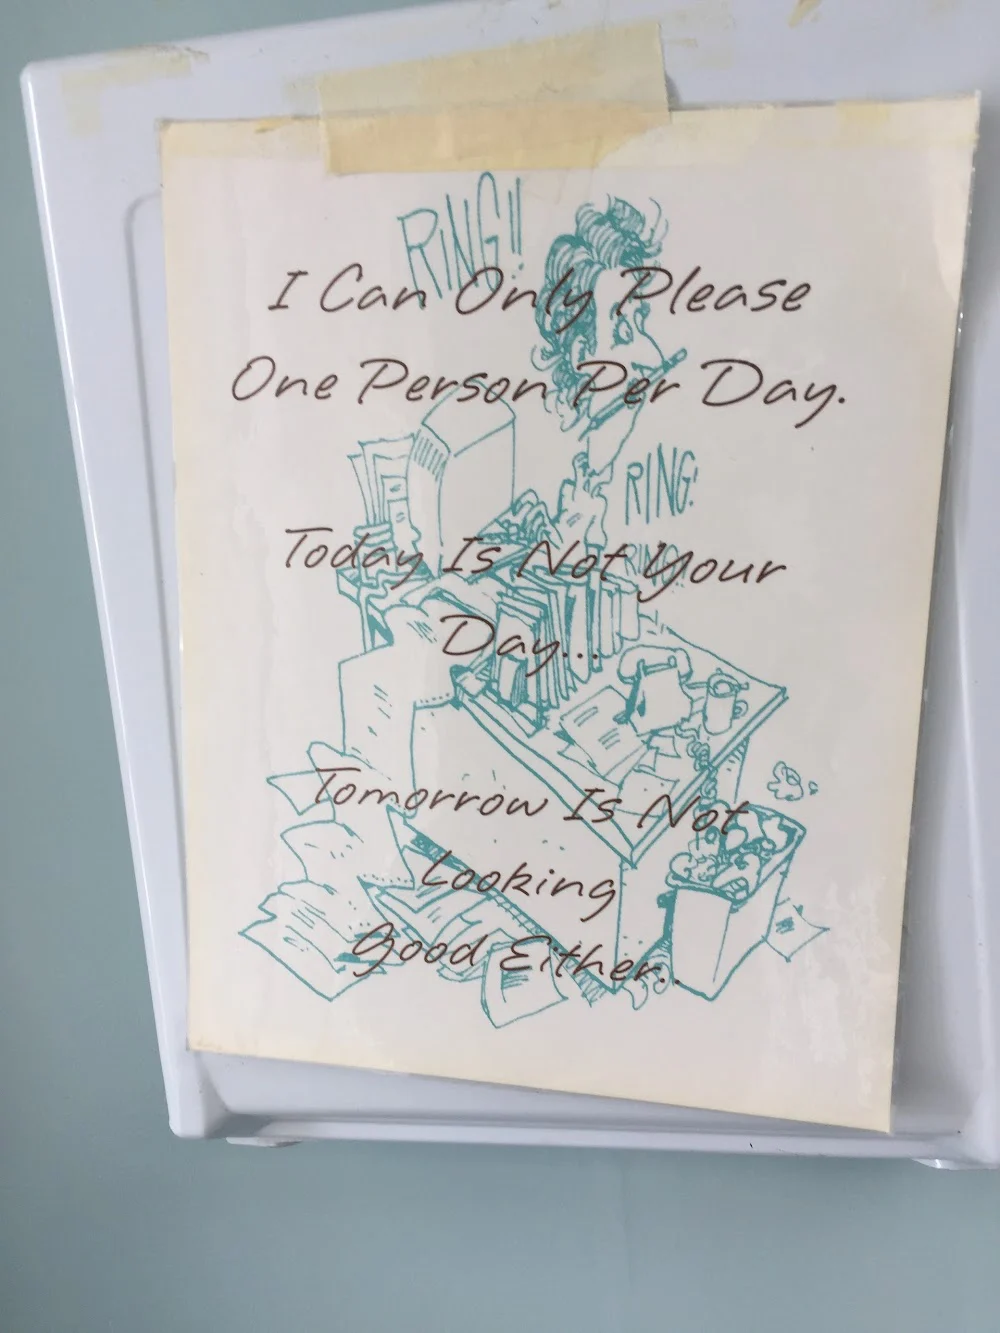 RING!!
I Can Only Please
One Person Per Day.
RING!
Today Is Not Your
RING
Day...
Tomorrow Is Not
Looking
good Either..